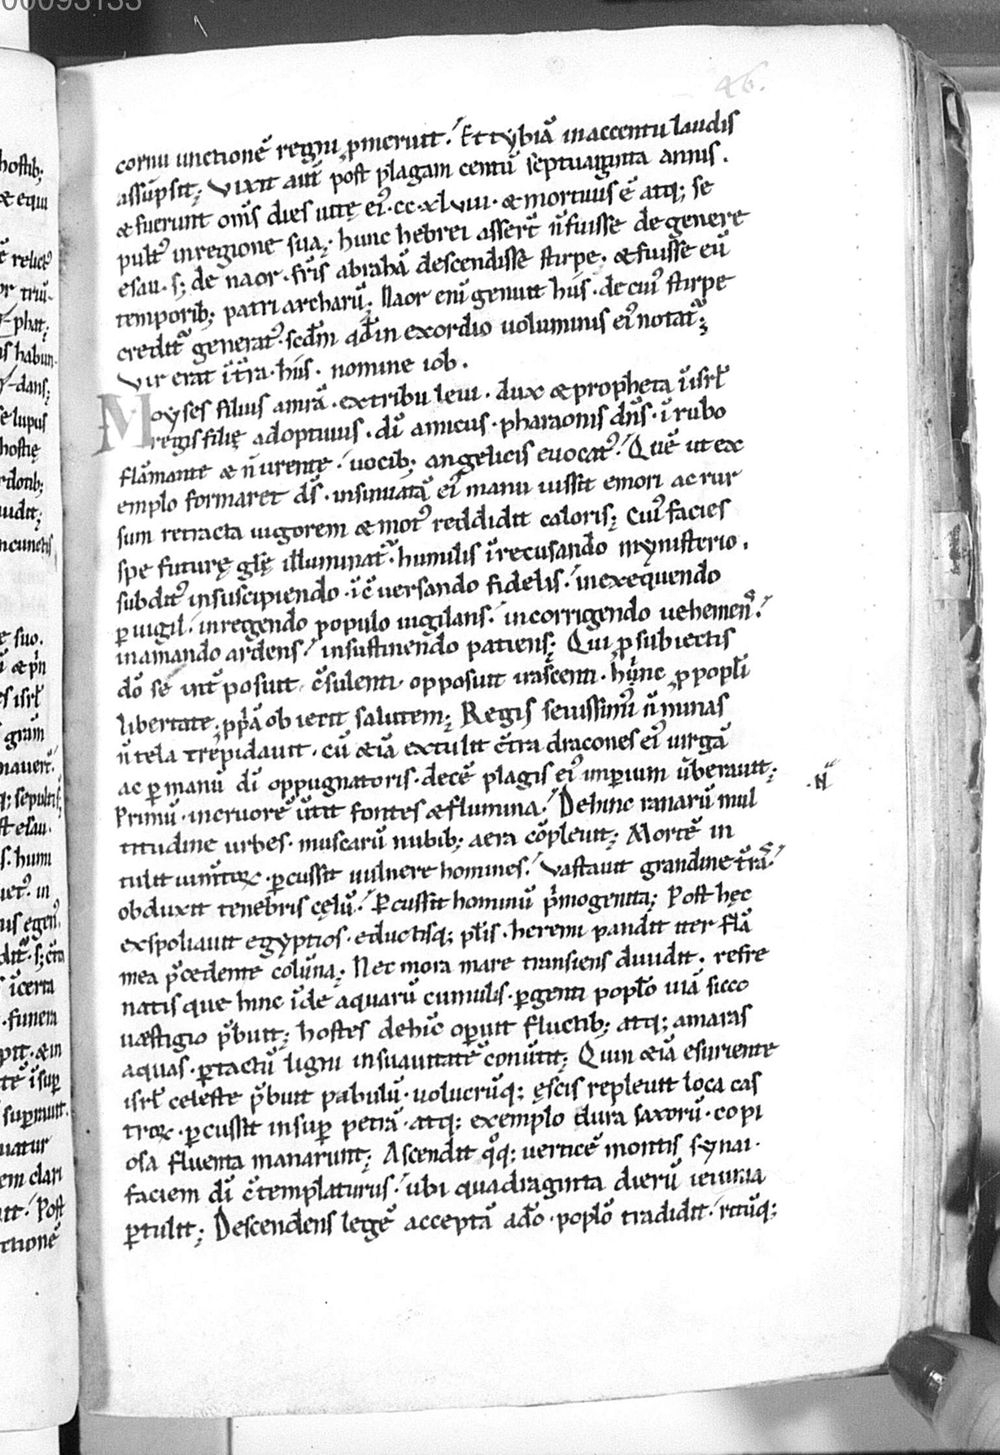 00093133
46.
cornu unctionē regni ꝓmeruit. Et tybiā in accentu laudis
assūpsit; Vixit autē post plagam centū septuaginta annis.
& fuerunt om̄s dies uitę ei᷒ ·cc·xlviii· & mortuus ē atq; se
pult᷒ in regione sua; hunc hebrei asser̄t n̄ fuisse de genere
esau · s; de naor · fr̄is abrahā descendisse stirpe; & fuisse eū
temporib; patriarcharū; Naor eni genuit hus · de cui᷒ stirpe
credit᷑ generat᷒ · scdm̄ qđ in exordio uoluminis ei᷒ notat᷑;
Vir erat ī t̄ra · hus · nomine iob.
Moyses filius amrā · ex tribu leui · dux & propheta ī isrl̄
regis filię adoptiuus · dī amicus · pharaonis dn̄s · ī rubo
flāmante & n̄ urente · uocib; angelicis euocat᷒. Quē ut ex
emplo formaret ds̄ · insinuatā ei᷒ manū iussit emori ac rur
sum retracta uigorem & mot᷒ reddidit caloris; Cui᷒ facies
spe futurę glę̄ illuminat᷑ · humilis ī recusando mynisterio.
subdit᷒ in suscipiendo · ī c̄uersando fidelis · in exequendo
ꝑuigil · in regendo populo uigilans · in corrigendo uehemen᷒.
in amando ardens · in sustinendo patiens; Qui ꝓ subiectis
dō se int᷑posuit · c̄sulenti · opposuit irascenti · hunc ꝓ popli
libertate; ꝓpā obiecit salutem; Regis seuissimi n̄ minas
n̄ tela trepidauit · cū &iā extulit c̄tra dracones ei᷒ uirgā
ac ꝑ manū dī oppugnatoris · decē plagis ei᷒ imperium ūberauit;
N
Primū · in cruorē ūtit fontes & flumina. Dehinc ranarū mul
titudine urbes · muscarū nubib; aera cōpleuit; Mortē in
tulit iumtoꝝ · ꝑcussit uulnere homines. Vastauit grandine t̄rā.
obduxit tenebris cęlū. Percussit hominū p̄mogenita; Post hęc
exspoliauit egyptios · eductisq; plis · heremi pandit iter flā
mea p̄cedente colūna; Nec mora mare transiens diuidit · refre
natis que hinc īde aquarū cumulis · ꝑgenti poplo uiā sicco
uestigio p̄buit; hostes dehīc opuit fluctib; atq; amaras
aquas · ꝑ tactū ligni in suauitatē conūtit; Quin &iā esuriente
isrl̄ celeste p̄buit pabulū · uolucrūq; ęscis repleuit loca cas
troꝝ · ꝑcussit insuꝑ petrā · atq; exemplo dura saxorū · copi
osa fluenta manarunt; Ascendit qōq; uerticē montis synai ·
faciem dī c̄templaturus · ubi quadraginta dierū ieiunia
ꝑtulit; Descendens legē acceptā a dō · poplo tradidit · rituq;